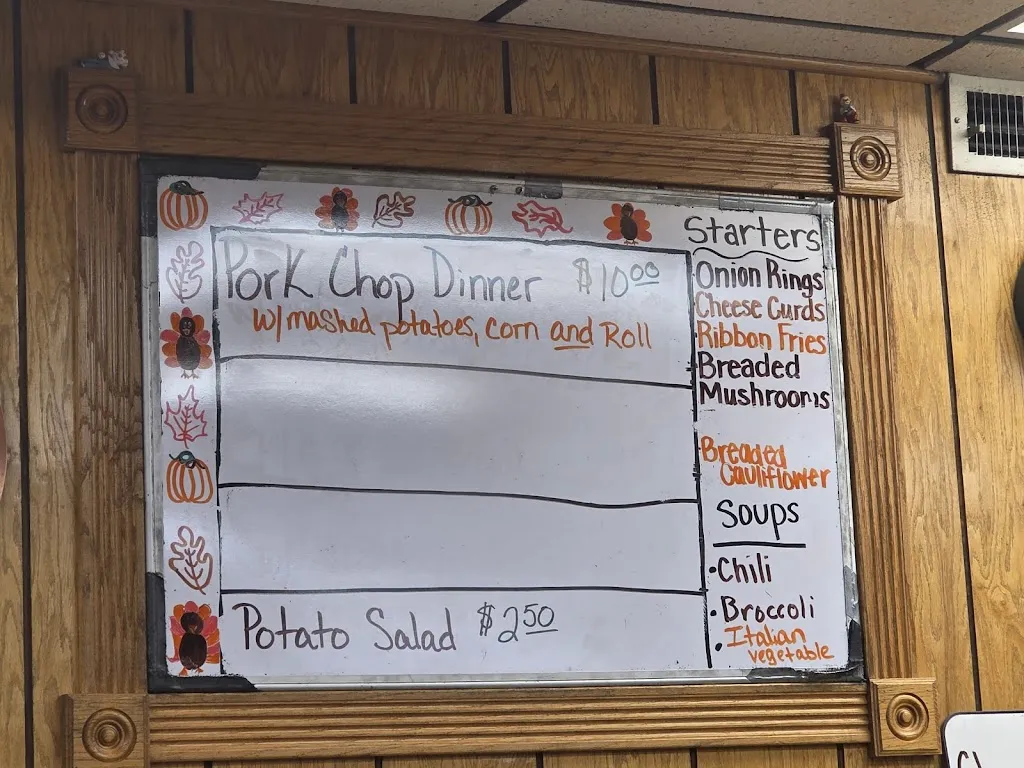 Pork Chop Dinner $10.00
w/ mashed potatoes, corn and Roll
Potato Salad $2.50
Starters
Onion Rings
Cheese Curds
Ribbon Fries
Breaded
Mushrooms
Breaded
Cauliflower
Soups
•Chili
•Broccoli
•Italian
vegetable